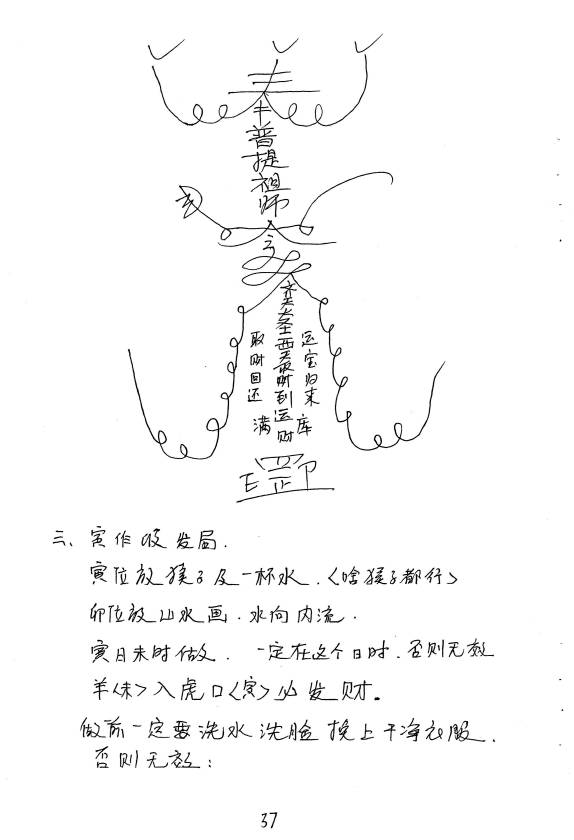 奉
普提祖师
取财回还
满
运宝归来
库
三、寅作发局.
寅位放猴子及一杯水.〈啥猴子都行〉
卯位放山水画.水向内流.
寅日未时做. 一定在这个日时.否则无效
羊〈未〉入虎口〈寅〉必发财。
做前一定要洗水洗脸换上干净衣服.
否则无效:
37